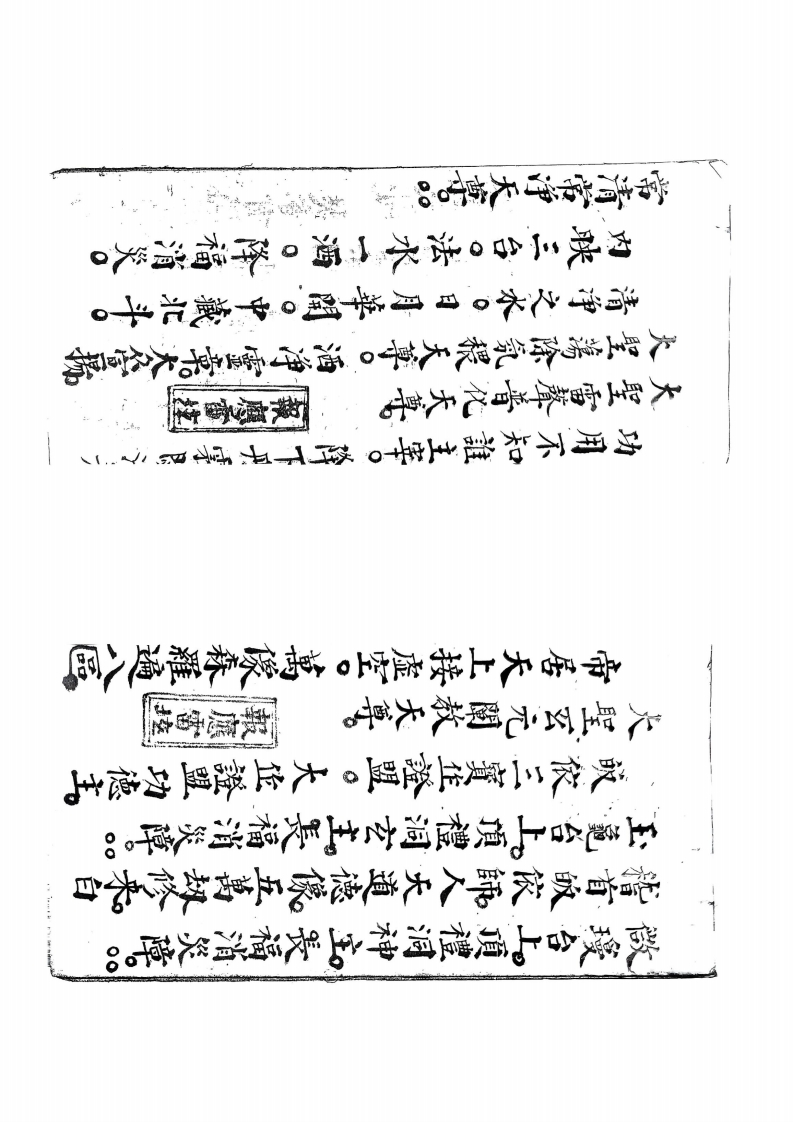 微璦台上。頂禮洞神主。長福消災障。。
稽首皈依師。人天道德像。五萬劫修來。白
玉龜台上。頂禮洞玄主。長福消災障。。
皈依三寶作證盟。大作證盟功德主。
大聖玄元闡教天尊。
報應雷
帝居天上接虛空。萬像森羅遍八區。
功用不知誰主宰。降下丹霄
大聖雷聲普化天尊。
報應雷
大聖蕩除氛穢天尊。洒淨靈章。大众宣揚。
清淨之水。日月華開。中藏北斗。
內映三台。法水一洒。降福消災。
常清常淨天尊。。